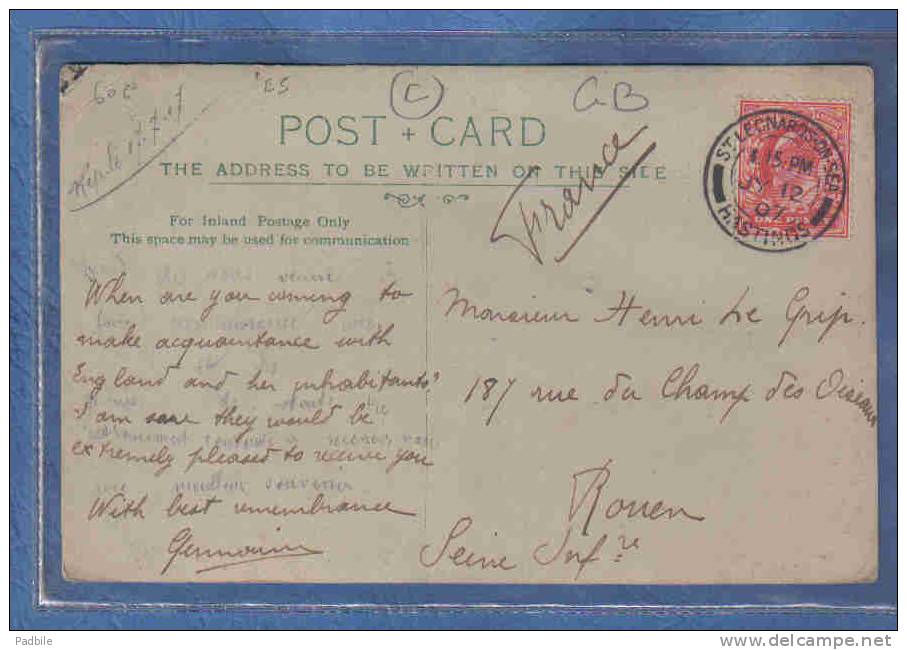 60 c
ES
C
GB
POST + CARD
THE ADDRESS TO BE WRITTEN ON THIS SIDE
France
ST LEONARDS-ON-SEA
15 PM
JY 12
07
HASTINGS
For Inland Postage Only
This space may be used for communication
When are you coming to
make acquaintance with
England and her inhabitants?
I am sure they would be
extremely pleased to receive you
With best remembrance
Germain
Monsieur Henri Le Grip.
187 rue du Champ des Oiseaux
Rouen
Seine Infre
Padbile
www.delcampe.net